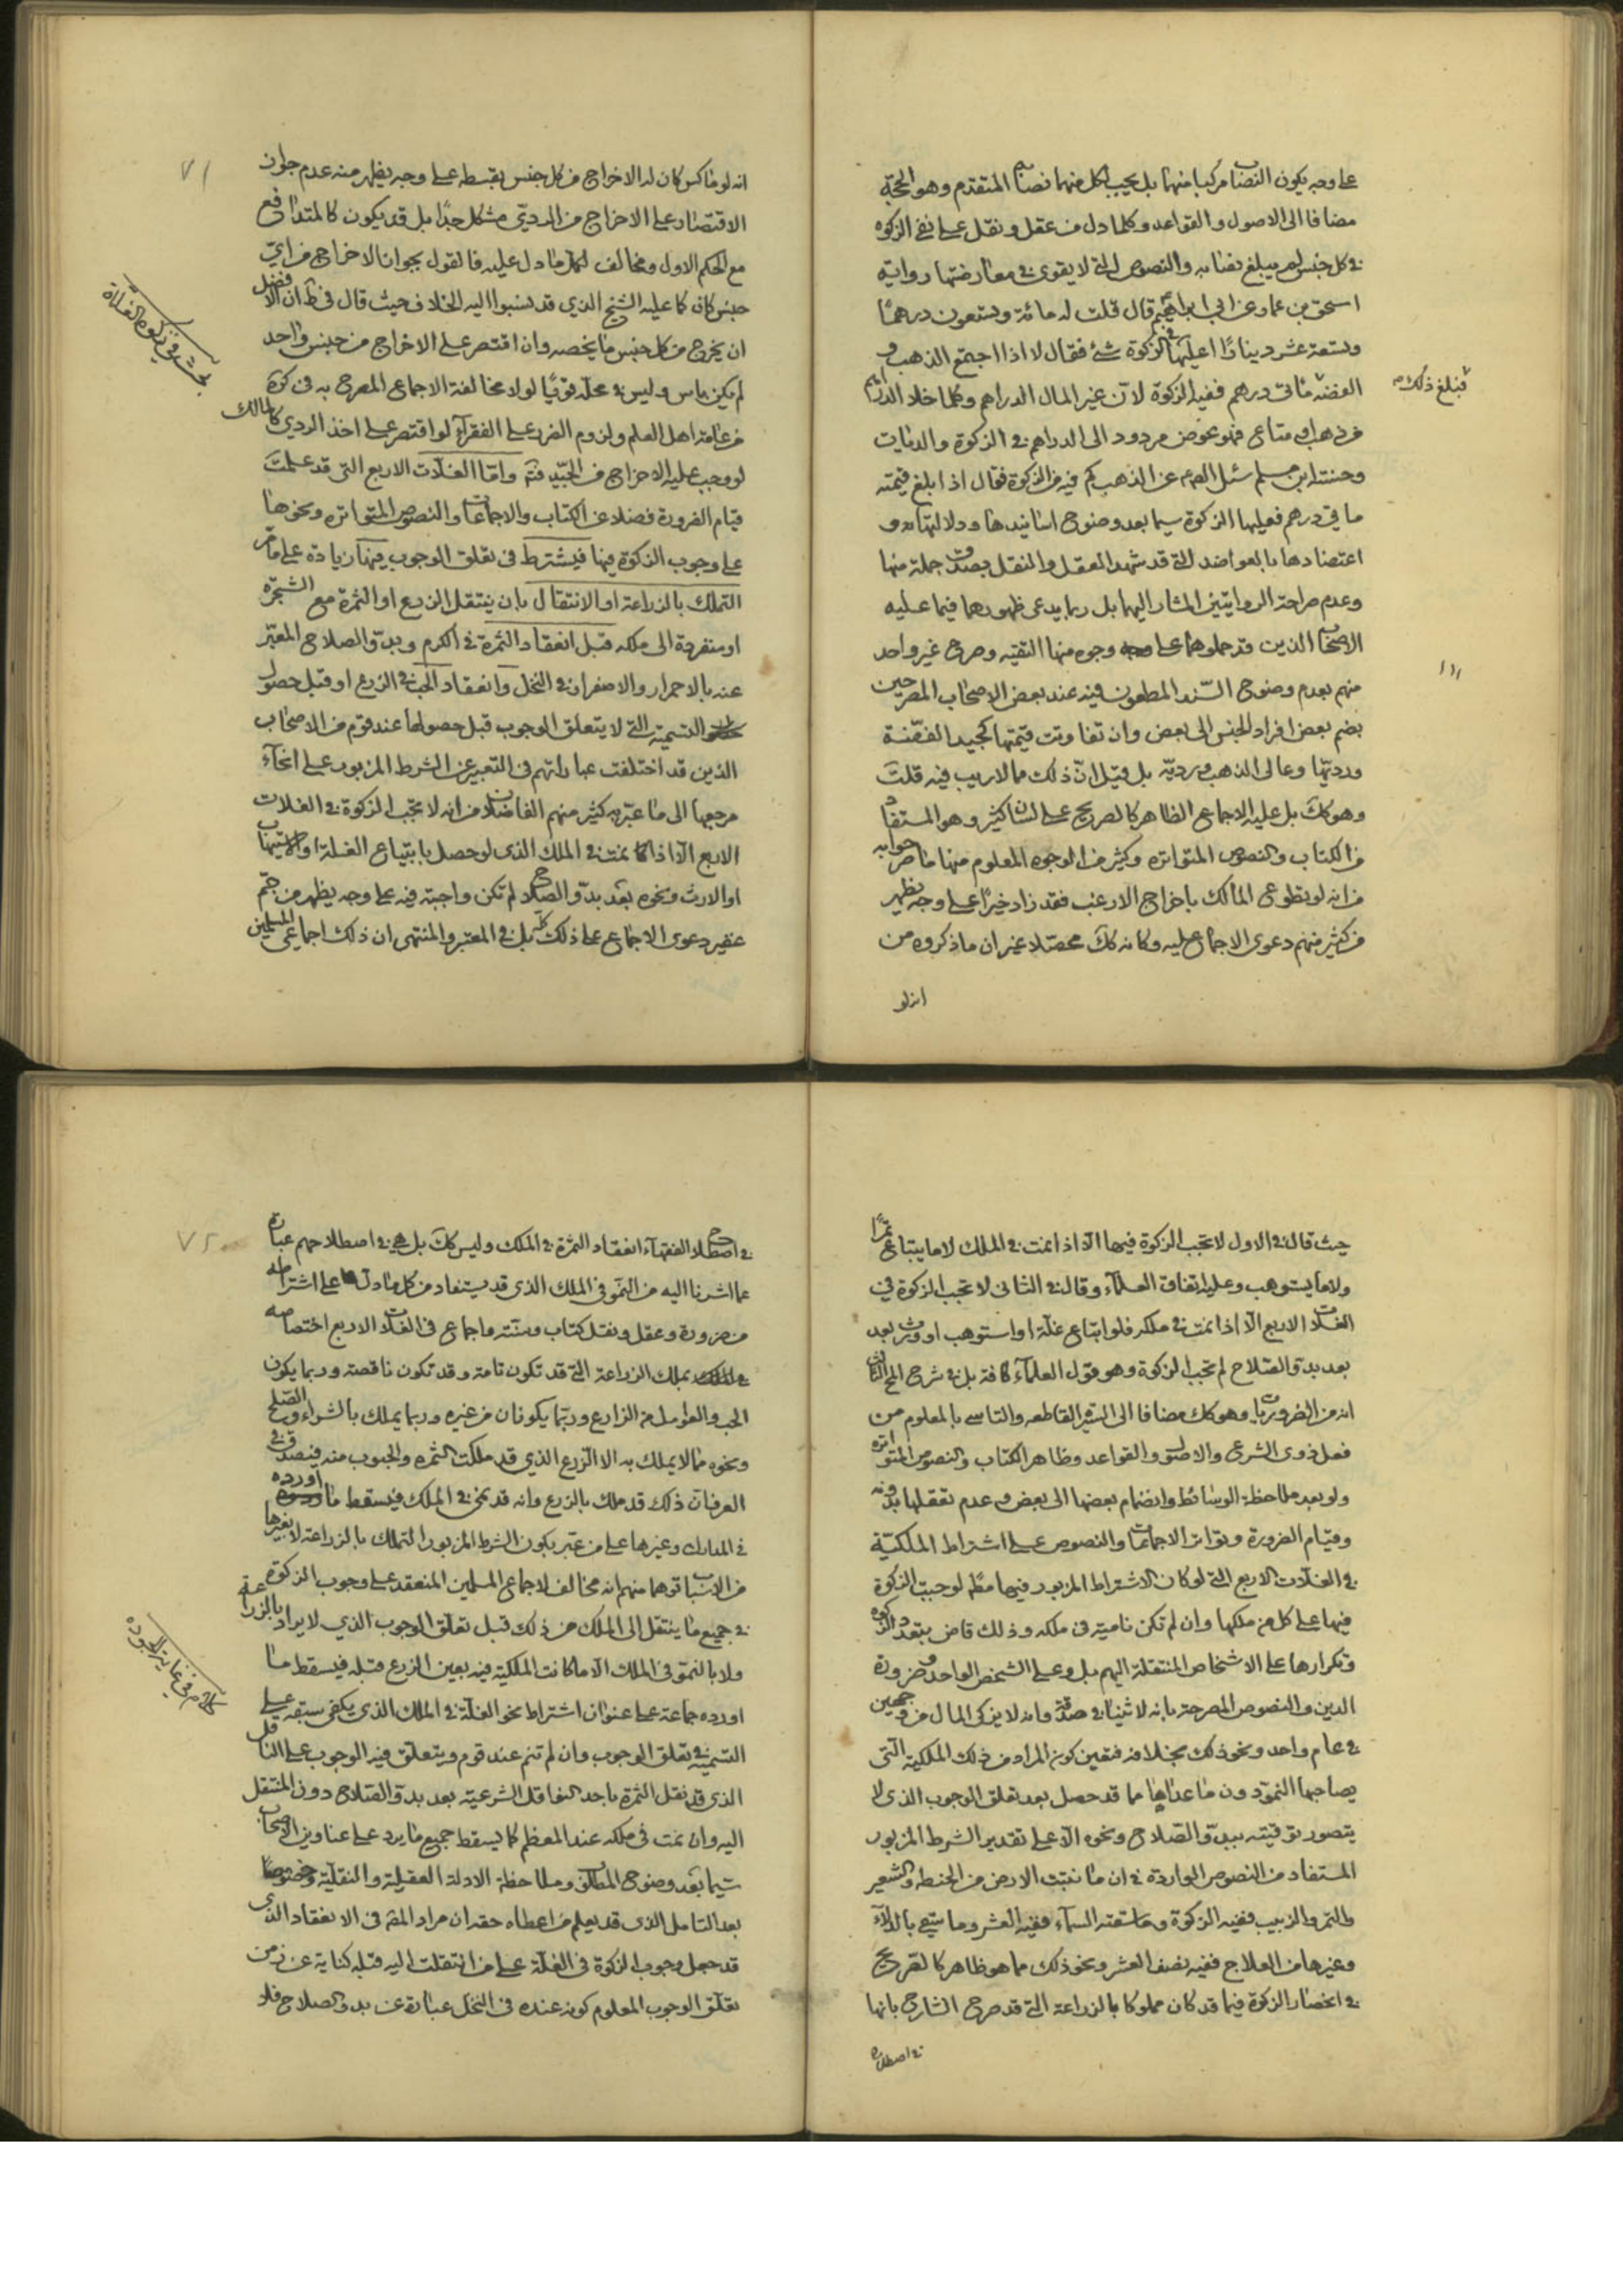 على وجه يكون النصاب مركبا منهما بل يجب لكل منهما نصابه المتقدم وهو الحجة
مضافا الى الاصول والقواعد وكلما دل من عقل ونقل على نفي الزكوة
في كل جنس لم يبلغ نصابه والنصوص التي لا يقوى في معارضتها رواية
اسحق بن عمار عن ابي ابراهيم قال قلت له مائة وتسعون درهما
وتسعة عشر دينارا اعليها في الزكوة شئ فقال لا اذا اجتمع الذهب و
الفضة مائتي درهم ففيها الزكوة لان عين المال الدراهم وكلما خلا الدراهم
فبلغ ذلك
من ذهب او متاع فهو عرض مردود الى الدراهم في الزكوة والديات
وحسنة ابن مسلم سئل الصادق عن الذهب كم فيه من الزكوة فقال اذا بلغ قيمته
مأتي درهم فعليها الزكوة سيما بعد وضوح اسانيدها ودلالتها و
اعتضادها بالعواضد التي قد شهد العقل والنقل بصدق جملة منها
وعدم صراحة الروايتين المشار اليهما بل ربما يدعى ظهورهما فيما عليه
الاصحاب الذين قد حملوهما على وجوه منها التقيه وصرح غير واحد
منهم بعدم وضوح السند المطعون فيه عند بعض الاصحاب المصرحين
بضم بعض افراد الجنس الى بعض وان تفاوتت قيمتها كجيد الفضة
ورديها وعالي الذهب ورديه بل قيل ان ذلك مما لا ريب فيه قلت
وهو كك بل عليه الاجماع الظاهر كالصريح على لسان كثير وهو المستفاد
من الكتاب والنصوص المتواتره وكثير من الوجوه المعلوم منها ما صرحوا به
من انه لو تطوع المالك باخراج الارغب فقد زاد خيرا على وجه يظهر
من كثير منهم دعوى الاجماع عليه وكانه كك محصلا غير ان ما ذكروه من
انه لو
٧١
انه لو ماكس كان له الاخراج من كل جنس بقسطه على وجه يظهر منه عدم جواز
الاقتصار على الاخراج من الردي مشكل جدا بل قد يكون كالمتدافع
مع الحكم الاول ومخالف لكل ما دل عليه فالقول بجواز الاخراج من اي
جنس كان كما عليه الشيخ الذي قد نسبوا اليه الخلاف حيث قال في ط ان الافضل
ان يخرج من كل جنس ما يخصه وان اقتصر على الاخراج من جنس واحد
لم يكن باس وليس في محله قويا لولا مخالفة الاجماع المصرح به في كرة
من عامة اهل العلم ولزوم الضرر على الفقراء لو اقتصر على اخذ الردي كالمالك
لو وجب عليه الاخراج من الجيد فتم واما الغلات الاربع التي قد علمت
قيام الضرورة فضلا عن الكتاب والاجماعات والنصوص المتواتره ونحوها
على وجوب الزكوة فيها فيشترط في تعلق الوجوب فيها زيادة على ما مر
التملك بالزراعة او الانتقال بان ينتقل الزرع او الثمرة مع الشجرة
او منفردة الى ملكه قبل انعقاد الثمرة في الكرم وبدو الصلاح المعبر
عنه بالاحمرار والاصفرار في النخل وانعقاد الحب في الزرع او قبل حصول
التسمية التي لا يتعلق الوجوب قبل حصولها عند قوم من الاصحاب
الذين قد اختلفت عباراتهم في التعبير عن الشرط المزبور على انحاء
مرجعها الى ما عبر به كثير منهم الفاضلان من انه لا تجب الزكوة في الغلات
الاربع الا اذا نمت في الملك الذي لو حصل بابتياع الغلة او استيهاب
او الارث ونحوه بعد بدو الصلاح لم تكن واجبة فيه على وجه يظهر من جم
غفير دعوى الاجماع على ذلك بل في المعتبر والمنتهى ان ذلك اجماعي المسلمين
بحث في زكوة الغلاة
حيث قال في الاول لا تجب الزكوة فيها الا اذا نمت في الملك لا ما يبتاع ثمرا
ولا ما يستوهب وعليه اتفاق العلماء وقال في الثاني لا تجب الزكوة في
الغلات الاربع الا اذا نمت في ملكه فلو ابتاع غلة او استوهب او ورث بعد
بعد بدو الصلاح لم تجب الزكوة وهو قول العلماء كافة بل في شرح المفاتيح
انه من الضروريات وهو كك مضافا الى السيرة القاطعه والتاسي بالمعلوم من
فعل ذوي الشرع والاصول والقواعد وظاهر الكتاب والنصوص المتواتره
ولو بعد ملاحظة الوسائط وانضمام بعضها الى بعض وعدم تعقلها بدونه
وقيام الضرورة وتواتر الاجماعات والنصوص على اشتراط الملكية
في الغلات الاربع التي لو كان الاشتراط المزبور فيها مطم لوجبت الزكوة
فيها على كل من ملكها وان لم تكن نامية في ملكه وذلك قاض بتعدد الزكوة
وتكرارها على الاشخاص المنتقلة اليهم بل وعلى الشخص الواحد وضرورة
الدين والنصوص المصرحة بانه لا ثنيا في صدقة وانه لا يزكى المال من وجهين
في عام واحد ونحو ذلك بخلافه فتعين كون المراد من ذلك الملكية التي
يصاحبها النمو دون ما عداها مما قد حصل بعد تعلق الوجوب الذي لا
يتصور توقيته ببدو الصلاح ونحوه الا على تقدير الشرط المزبور
المستفاد من النصوص الواردة في ان ما نبتت الارض من الحنطة والشعير
والتمر والزبيب ففيه الزكوة وما سقته السماء ففيه العشر وما سقي بالدلاء
وغيرها من العلاج ففيه نصف العشر ونحو ذلك مما هو ظاهر كالصريح
في انحصار الزكوة فيما قد كان مملوكا بالزراعة التي قد صرح الشارح بانها
في اصطلاح
٧٢
في اصطلاح الفقهاء انعقاد الثمرة في الملك وليس كك بل هي في اصطلاحهم عبارة
عما اشرنا اليه من النمو في الملك الذي قد يستفاد من كل ما دل على اشتراطه
من ضرورة وعقل ونقل كتاب وسنة واجماع في الغلات الاربع اختصاصه
بملك الزراعة التي قد تكون تامة وقد تكون ناقصة وربما يكون
الحب والعوامل من الزارع وربما يكونان من غيره وربما يملك بالشراء والصلح
ونحوه مما لا يملك به الا الزرع الذي قد ملكت الثمره والحبوب منه فيصدق في
العرف ان ذلك قد ملك بالزرع وانه قد نمى في الملك فيسقط ما اورده
في المدارك وغيرها على من عبر بكون الشرط المزبور التملك بالزراعة لا بغيرها
من الاسباب توهما منهم انه مخالف لاجماع المسلمين المنعقد على وجوب الزكوة
في جميع ما ينتقل الى الملك من ذلك قبل تعلق الوجوب الذي لا يراد بالزراعة
ولا بالنمو في الملك الا ما كانت الملكية فيه بعين الزرع قبله فيسقط ما
اورده جماعة على عنوان اشتراط نمو الغلة في الملك الذي يكفي سبقه على
التسمية في تعلق الوجوب وان لم تنم عند قوم ويتعلق فيه الوجوب على الناقل
الذي قد نقل الثمرة باحد النواقل الشرعية بعد بدو الصلاح دون المنتقل
اليه وان نمت في ملكه عند المعظم كما يسقط جميع ما يرد على عناوين الاصحاب
سيما بعد وضوح المطالب وملاحظة الادلة العقلية والنقلية وخصوصا
بعد التامل الذي قد يعلم من اعطاه حقه ان مراد المص في الانعقاد الذي
قد جعل وجوب الزكوة في الغلة على من انتقلت اليه قبله كناية عن زمن
تعلق الوجوب المعلوم كونه عنده في النخل عبارة عن بدو الصلاح فلا